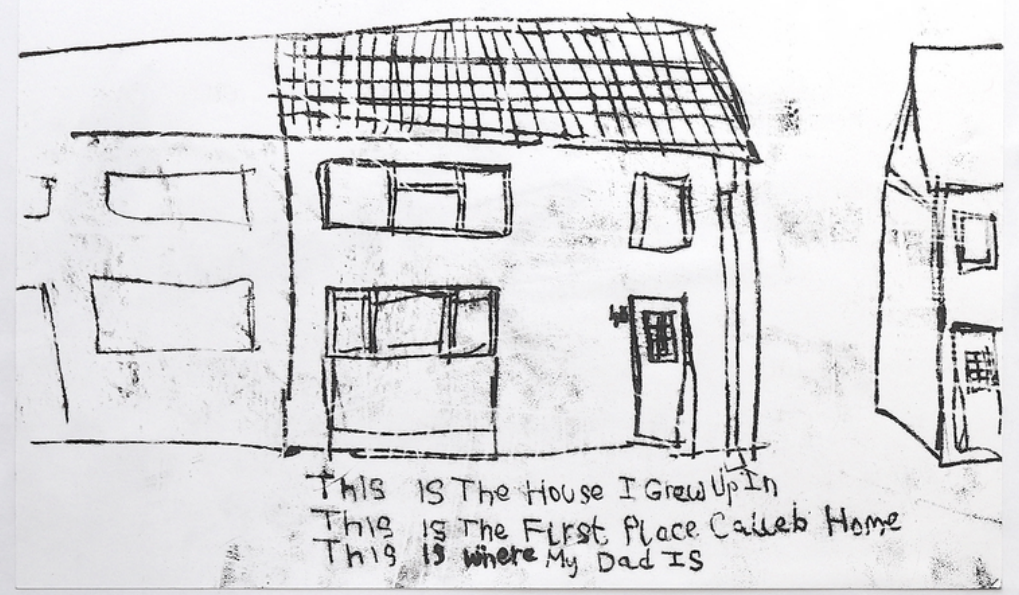 This IS The House I Grew Up In
This IS The First Place Calleb Home
This IS Where My Dad IS